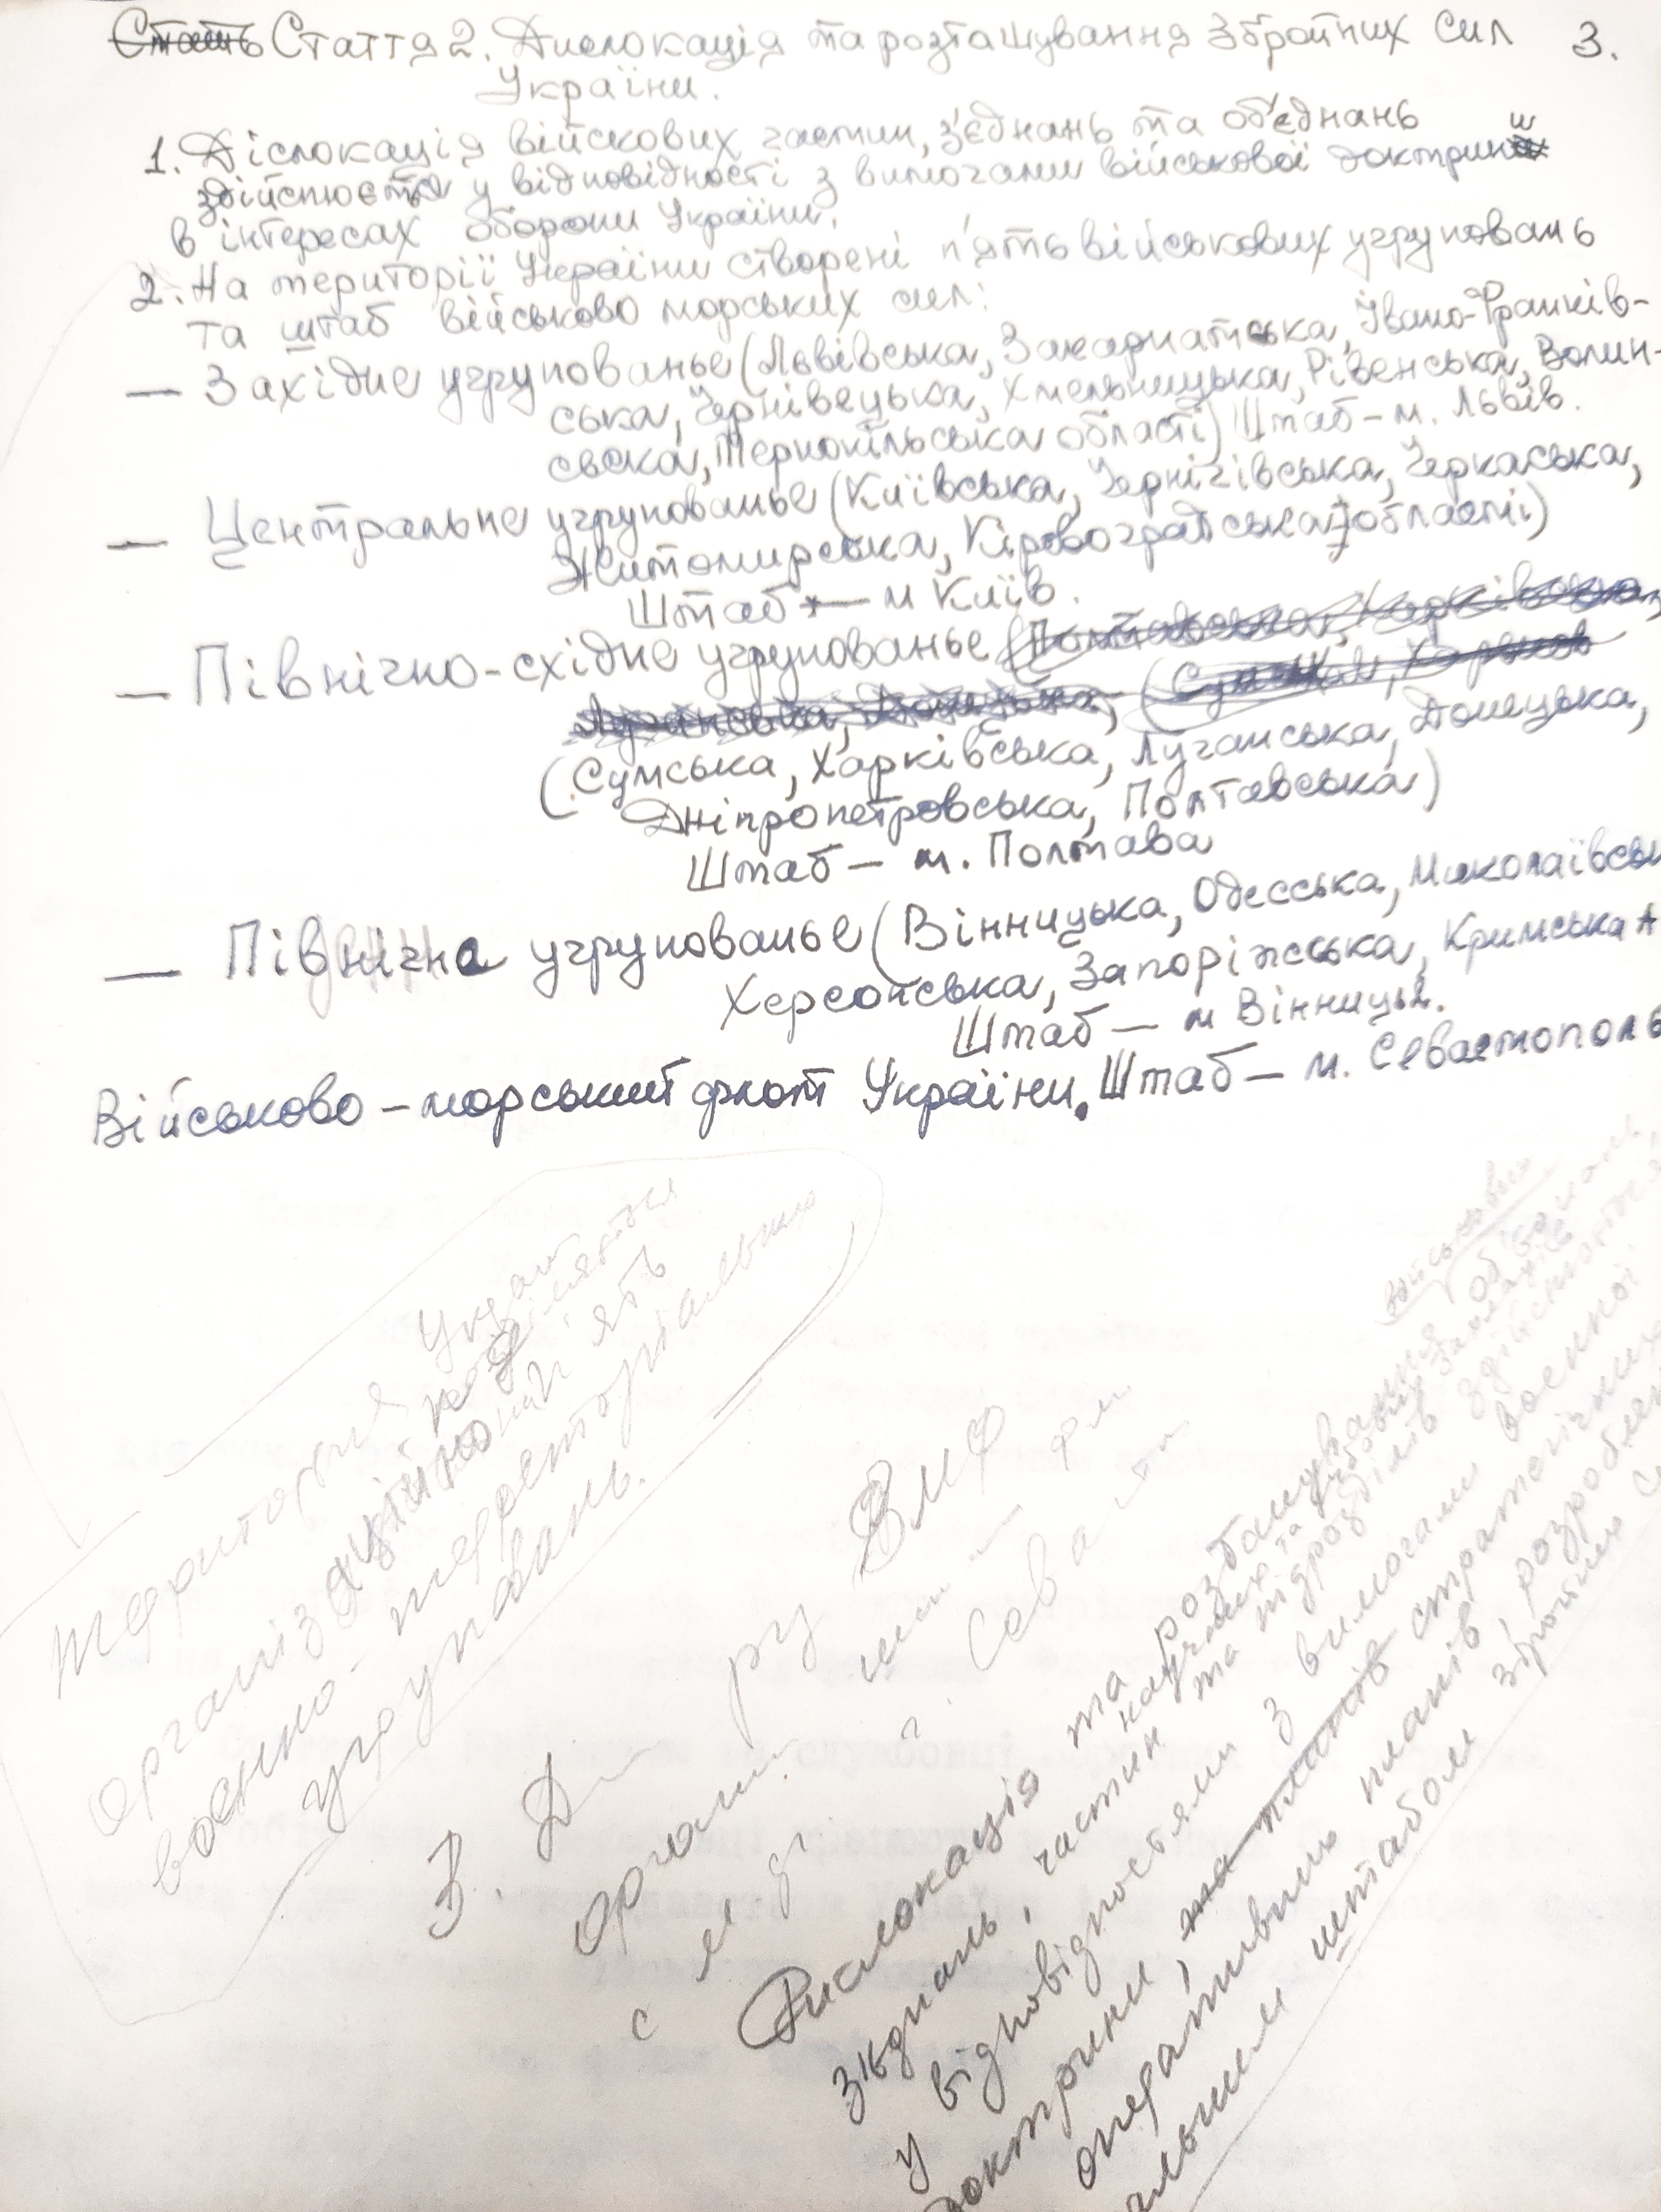 Стаття 2. Дислокація та розташування Збройних Сил 3.
України.
1. Діслокація військових частин, з'єднань та об'єднань
здійснюється у відповідності з вимогами військової доктрини
в інтересах оборони України.
2. На території України створені п'ять військових угруповань
та штаб військово морських сил:
— Західне угрупованье (Львівська, Закарпатська, Івано-Франків-
ська, Чернівецька, Хмельницька, Рівенська, Волин-
сьска, Тернопільська області) Штаб – м. Львів.
— Центральне угрупованье (Київська, Чернігівська, Черкаська,
Житомирська, Кіровоградська області)
Штаб — м Київ.
— Північно-східне угрупованье (Полтавська, Харківська,
Луганська, Донецька, (Сумская, Харьков
(Сумська, Харківська, Луганська, Донецька,
Дніпропетровська, Полтавська)
Штаб — м. Полтава
— Північна угрупованье (Вінницька, Одесська, Миколаївськ
Херсонська, Запоріжсська, Кримська А
Штаб — м Вінниця.
Військово – морський флот України. Штаб – м. Севастополь
Територия України
організаційно поділяється
на п'ять
воєнно-територіальних
угруповань.
3. Д
ВМФ
Сева
Дислокація та розташування військових
з'єднань, частин та підрозділів здійснюється
у відповідностями з вимогами воєнної
доктрини, та планів стратегічних
оперативних планів, розроблен
штабом Збройних С